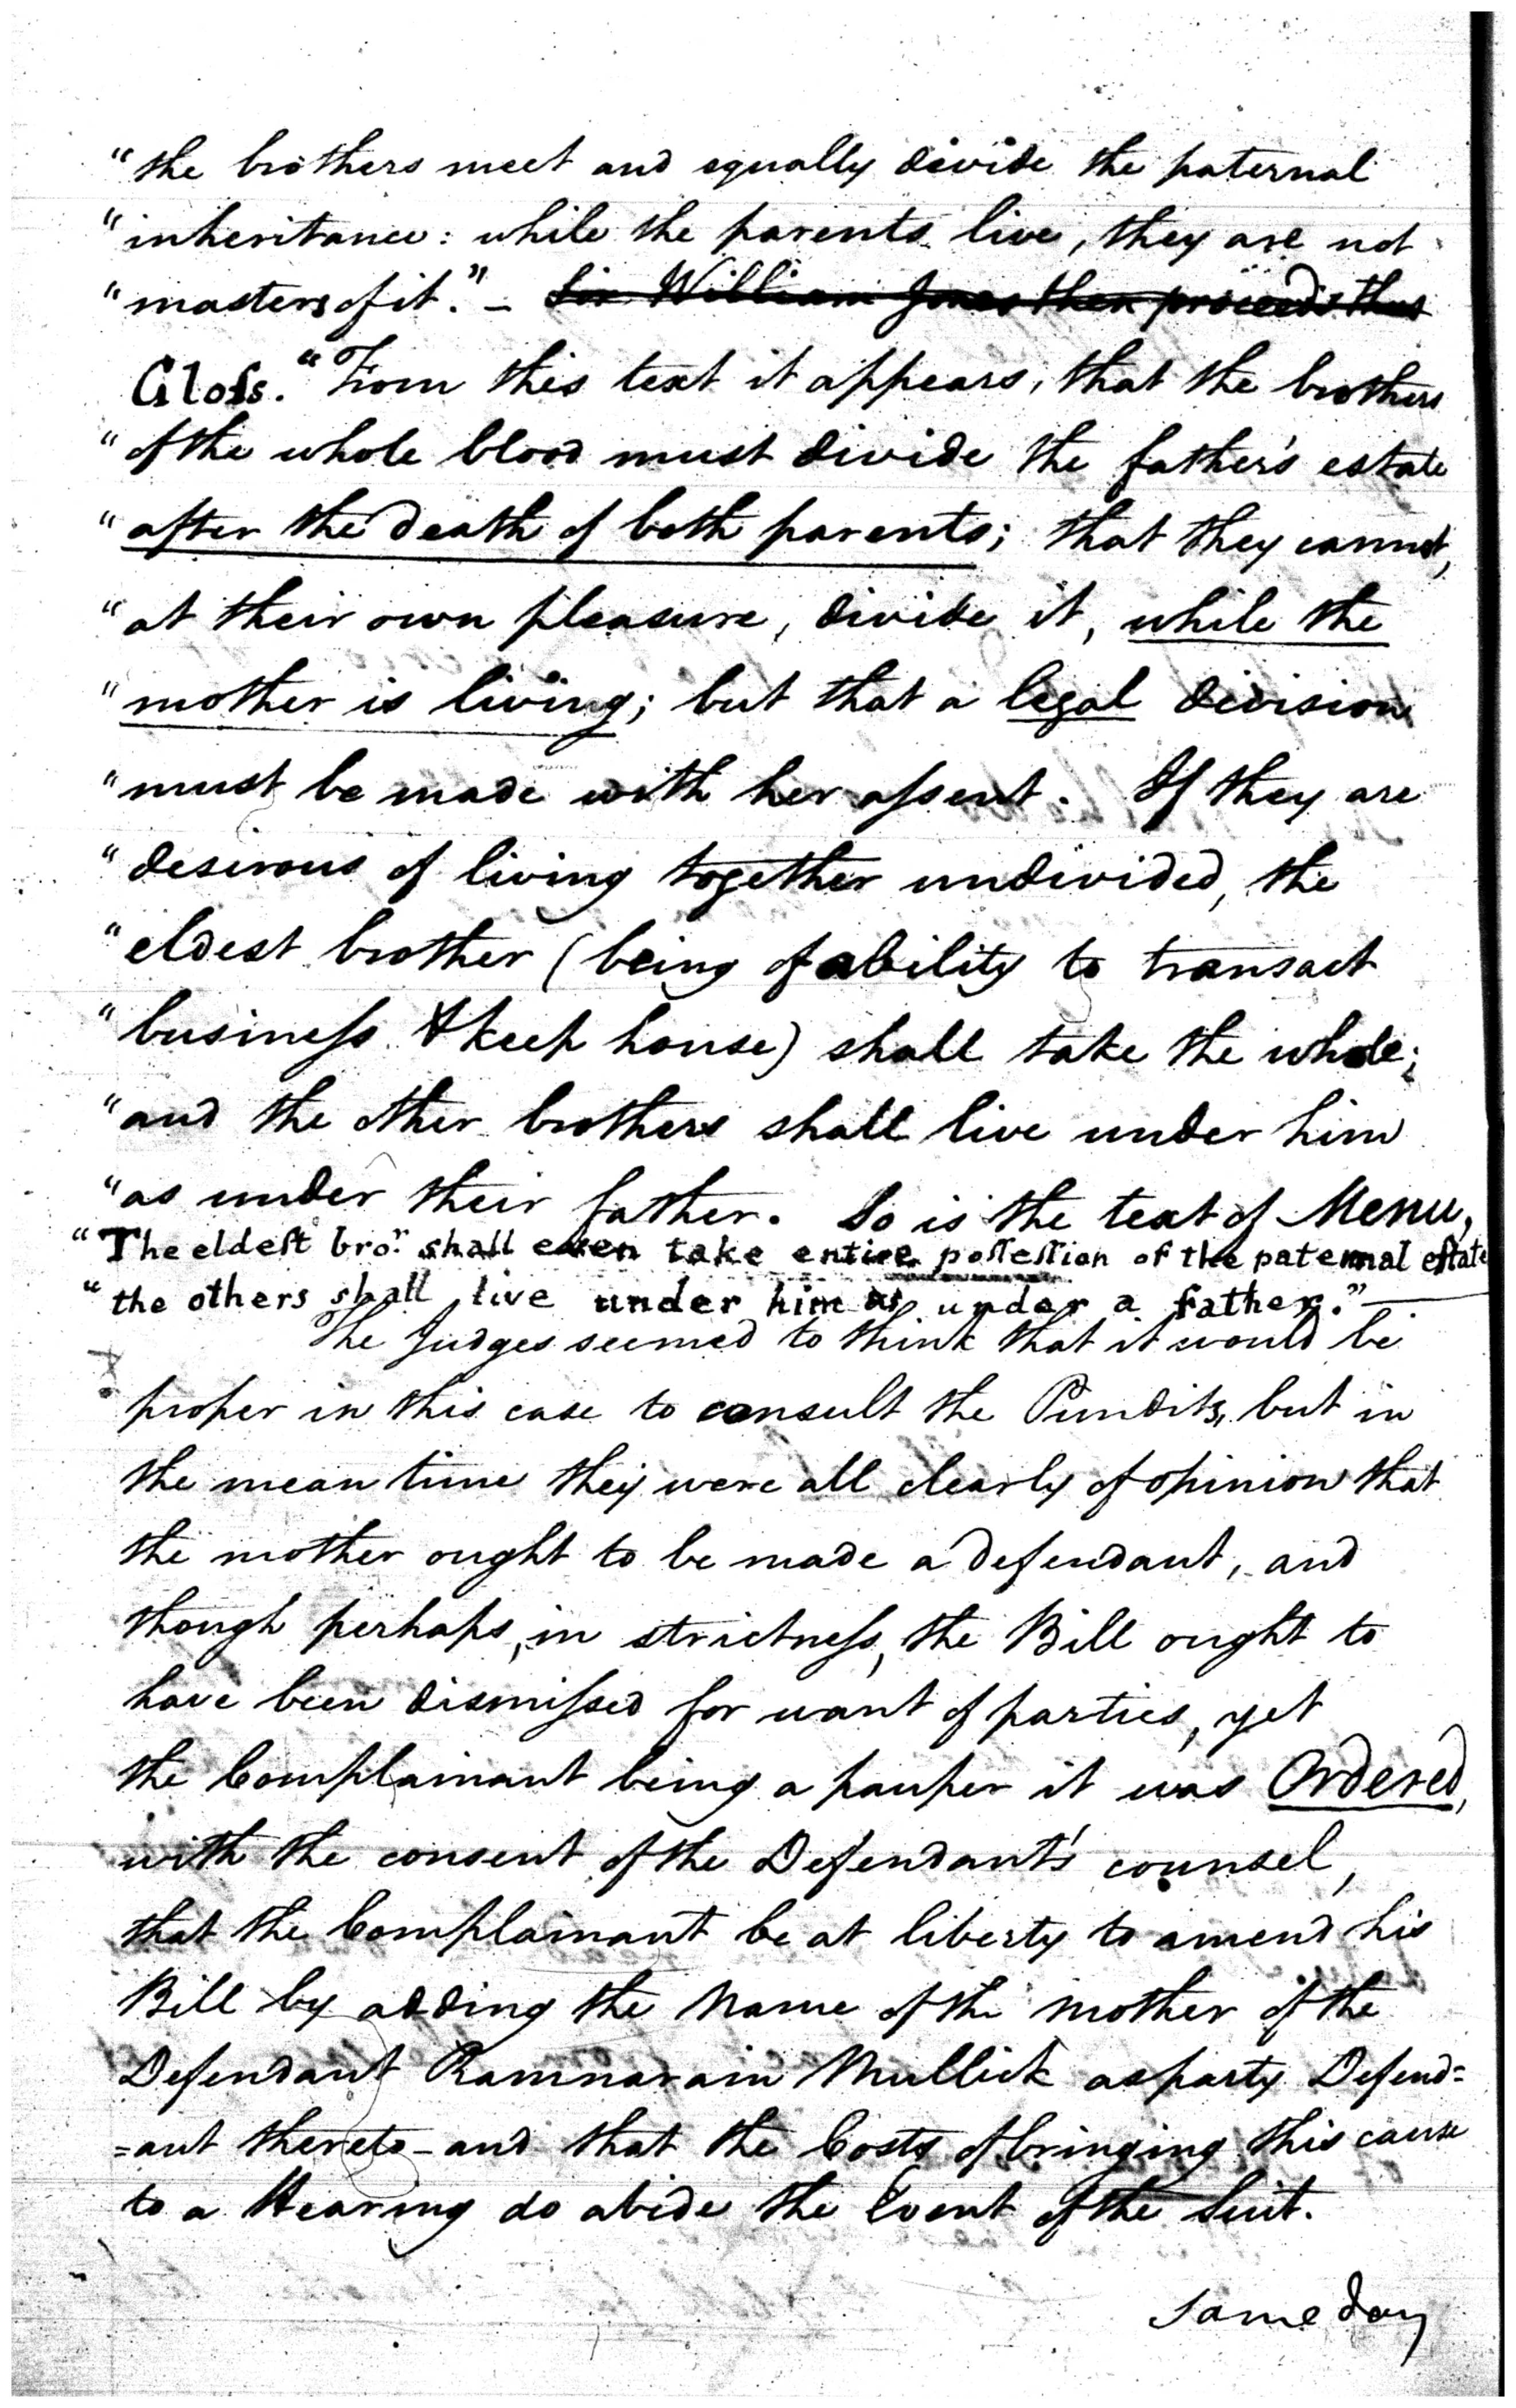 "the brothers meet and equally divide the paternal
"inheritance: while the parents live, they are not
"masters of it." - Sir William Jones then proceeds thus
Gloſs. "From this text it appears, that the brothers
"of the whole blood must divide the father's estate
"after the death of both parents; that they cannot,
"at their own pleasure, divide it, while the
"mother is living; but that a legal division
"must be made with her aſsent. If they are
"desirous of living together undivided, the
"eldest brother (being of ability to transact
"busineſs & keep house) shall take the whole;
"and the other brothers shall live under him
"as under their father. So is the text of Menu,
"The eldeſt bro.r shall even take entire poſſeſſion of the paternal eſtate
"the others shall live under him as under a father."
The Judges seemed to think that it would be
proper in this case to consult the Pundits, but in
the mean time they were all clearly of opinion that
the mother ought to be made a defendant, and
though perhaps, in strictneſs, the Bill ought to
have been dismiſsed for want of parties, yet
the Complainant being a pauper it was Ordered,
with the consent of the Defendant's counsel,
that the Complainant be at liberty to amend his
Bill by adding the Name of the mother of the
Defendant Ramnarain Mullick as party Defend=
=ant thereto - and that the Costs of bringing this cause
to a Hearing do abide the Event of the Suit.
Same day